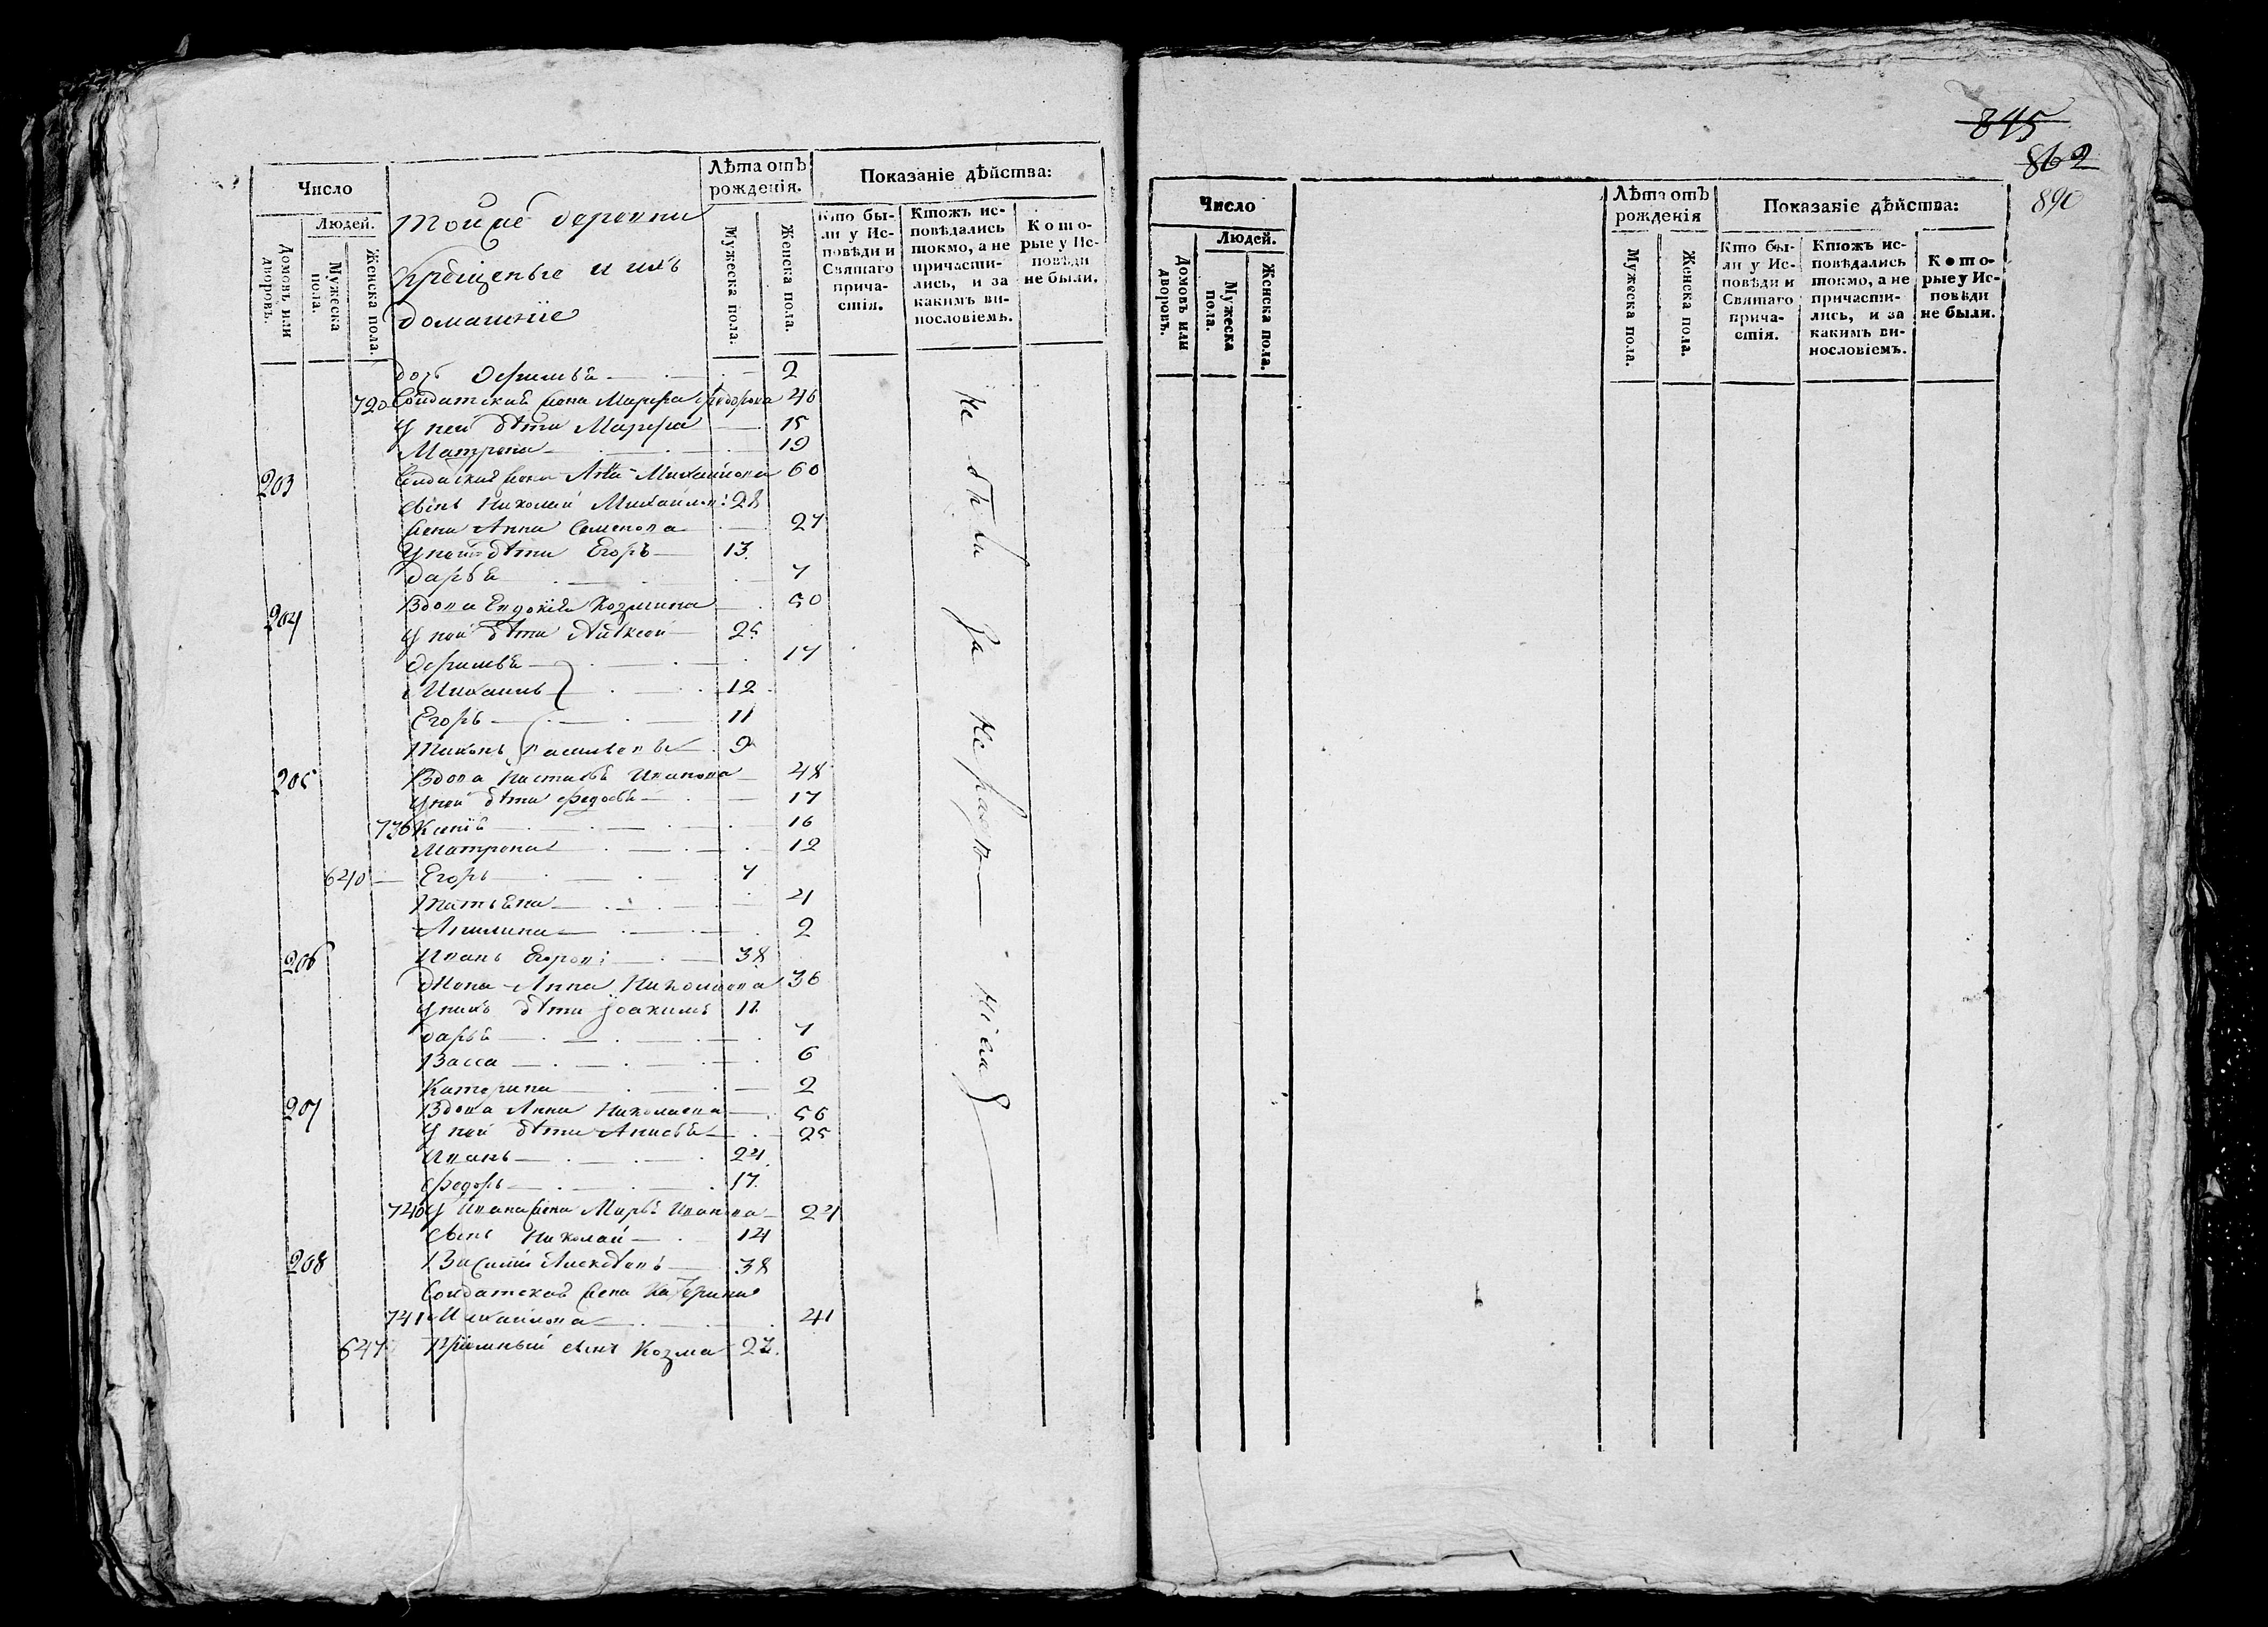 Число
Людей.
Домовъ или дворовъ.
Мужеска пола.
Женска пола.
Той же деревни
крещеные и ихъ
домашніе
Лѣта отъ рожденія.
Мужеска пола.
Женска пола.
Показаніе дѣйства:
Кто бы-
ли у Ис-
повѣди и
Святаго
прича-
стія.
Ктожъ ис-
повѣдались
токмо, а не
причасти-
лись, и за
какимъ ви-
нословіемъ.
Кото-
рые у Ис-
повѣди
не были.
дочь 2
720 Солдатская жена Марфа Федорова 46
У ней дѣти Марфа 15
Матрона 19
203 Солдаткая жена Михайлова 60
сынъ Николай Михайлов: 28
жена Анна Семенова 27
У ней дѣти Егоръ 13
Дарья 7
204 Вдова Евдокія Козмина 50
У ней дѣти Алексей 25
17
Михаилъ 12
Егоръ 11
Тихонъ Васильевы 9
205 Вдова Настасья Иванова 48
У ней дѣти Федосья 17
736 16
Матрона 12
640 Егоръ 7
Татьяна 4
Акилина 2
206 Иванъ Егоров: 38
Жена Анна Николаева 36
У нихъ дѣти Іоакимъ 11
Дарья 7
Васса 6
Катерина 2
207 Вдова Анна Николаева 56
У ней дѣти Анисья 25
Иванъ 24
Федоръ 17
740 У Ивана жена Марья Иванова 24
сынъ Николай 14
208 Василій Алексѣевъ 38
Солдатская жена Катерина
741 Михайлова 41
647 Пріимный сынъ Козма 27
Не были за нерадѣніем
845
862
890
Число
Людей.
Домовъ или дворовъ.
Мужеска пола.
Женска пола.
Лѣта отъ рожденія
Мужеска пола.
Женска пола.
Показаніе дѣйства:
Кто бы-
ли у Ис-
повѣди и
Святаго
прича-
стія.
Ктожъ ис-
повѣдались
токмо, а не
причасти-
лись, и за
какимъ ви-
нословіемъ.
Кото-
рые у Ис-
повѣди
не были.